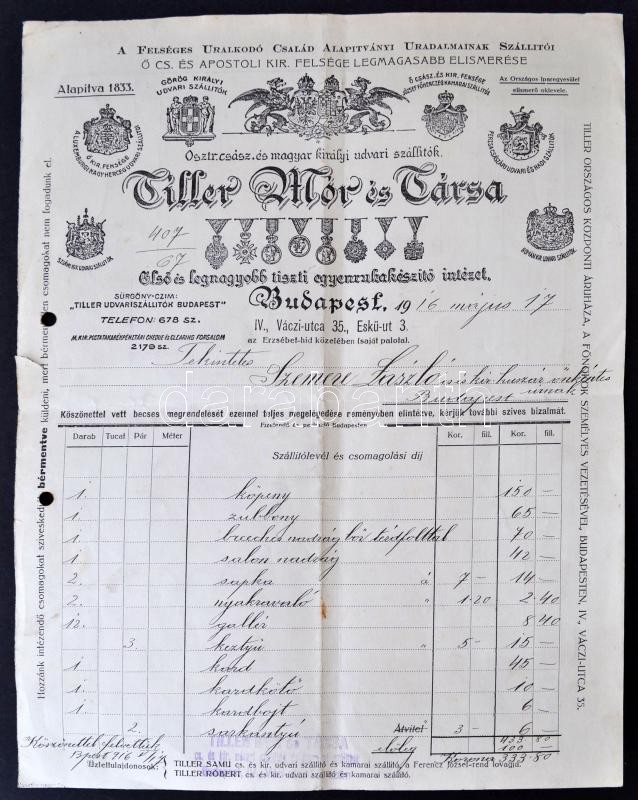 A Felséges Uralkodó Család Alapitványi Uradalmainak Szállitói
Ő CS. ÉS APOSTOLI KIR. FELSÉGE LEGMAGASABB ELISMERÉSE
Alapitva 1833.
GÖRÖG KIRÁLYI
UDVARI SZÁLLITÓK
Ő CSÁSZ. ÉS KIR. FENSÉGE
JÓZSEF FŐHERCZEG KAMARAI SZÁLLITÓI
Az Országos Iparegyesület
elismerő oklevele.
Ő KIR. FENSÉGE
A LUXEMBURGI NAGYHERCEG UDVARI SZÁLLITÓI
Osztr. csász. és magyar királyi udvari szállitók.
Tiller Mór és Társa
407
67
SZERB KIR. UDVARI SZÁLLITÓK
Első és legnagyobb tiszti egyenruhakészitő intézet.
SÜRGÖNY-CZIM:
"TILLER UDVARISZÁLLITÓK BUDAPEST"
TELEFON: 678 SZ.
M. KIR. POSTATAKARÉKPÉNZTÁRI CHEQUE ÉS CLEARING FORGALOM
2179 SZ.
Budapest, 1916 május 17
IV., Váczi-utca 35., Eskü-ut 3.
az Erzsébet-hid közelében (saját palota).
Tekintetes
Szemere László cs és kir. huszár önkéntes
urnak
Budapest
Köszönettel vett becses megrendelését ezennel teljes megelégedésre reményben elintézve, kérjük további szives bizalmát.
Fizetendő és perelhető Budapesten
Darab Tucat Pár Méter Kor. fill. Kor. fill.
Szállitólevél és csomagolási dij
1. köpeny 150 —
1. zubbony 65 —
1. breeches nadrág bőr térdfolttal 70 —
1 salon nadrág 42 —
2. sapka á 7 — 14 —
2. nyakravaló " 1·20 2·40
12. gallér 8 40
3. keztyű " 5 — 15 —
1 kard 45 —
1. kardkötő 10 —
1. kardbojt 6 —
2. sarkantyú 3 — 6 —
Átvitel
433·80
előleg 100 —
Korona 333·80
Köszönettel felvettük
Bpest 916
TILLER MÓR ÉS TÁRSA
Üzlettulajdonosok: TILLER SAMU cs. és kir. udvari szállitó és kamarai szállitó, a Ferencz József-rend lovagja.
TILLER RÓBERT cs. és kir. udvari szállitó és kamarai szállitó.
Hozzánk intézendő csomagokat sziveskedjék bérmentve küldeni, mert bérmentetlen csomagokat nem fogadunk el.
TILLER ORSZÁGOS KÖZPONTI ÁRUHÁZA, A FŐNÖKÖK SZEMÉLYES VEZETÉSÉVEL, BUDAPESTEN, IV., VÁCZI-UTCA 35.
darabanth